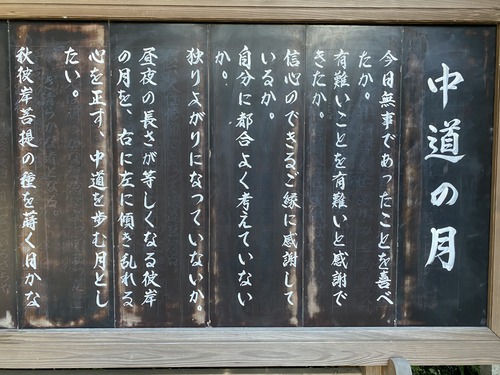 中道の月
今日無事であったことを喜べ
たか。
有難いことを有難いと感謝で
きたか。
信心のできるご縁に感謝して
いるか。
自分に都合よく考えていない
か。
独りよがりになっていないか。
昼夜の長さが等しくなる彼岸
の月を、右に左に傾き乱れる
心を正す、中道を歩む月とし
たい。
秋彼岸菩提の種を蒔く日かな